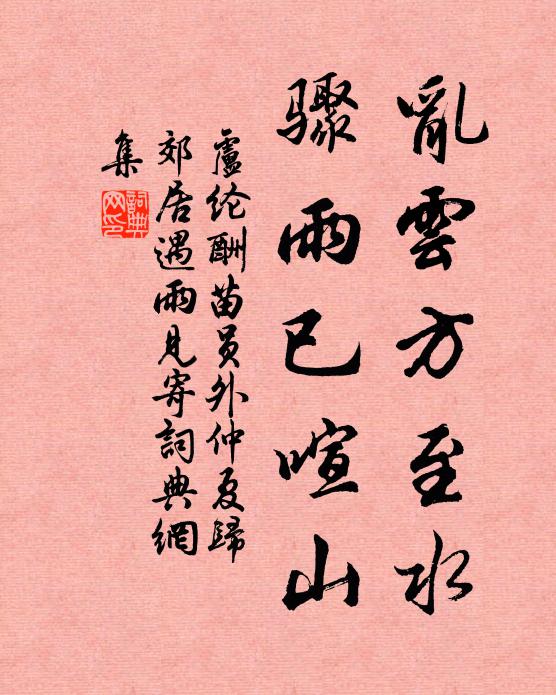 亂雲方至水
驟雨已喧山
盧纶酬苗员外仲夏歸
郊居遇雨見寄詞典網
集
詞典
网印